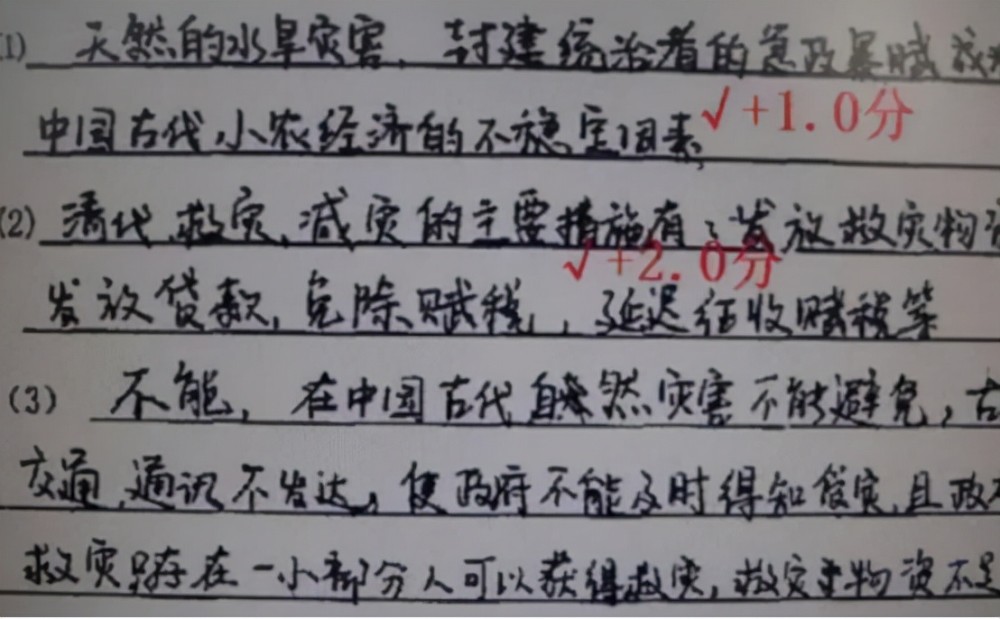 (1) 天然的水旱灾害,封建统治者的急政暴赋成为
中国古代小农经济的不稳定因素 √+1.0分
(2) 清代救灾、减灾的主要措施有:发放救灾物资
√+2.0分
发放贷款,免除赋税,延迟征收赋税等
(3) 不能,在中国古代自然灾害不能避免,古
交通、通讯不发达,使政府不能及时得知 且政
救灾只存在一小部分人可以获得救灾,救灾物资不足